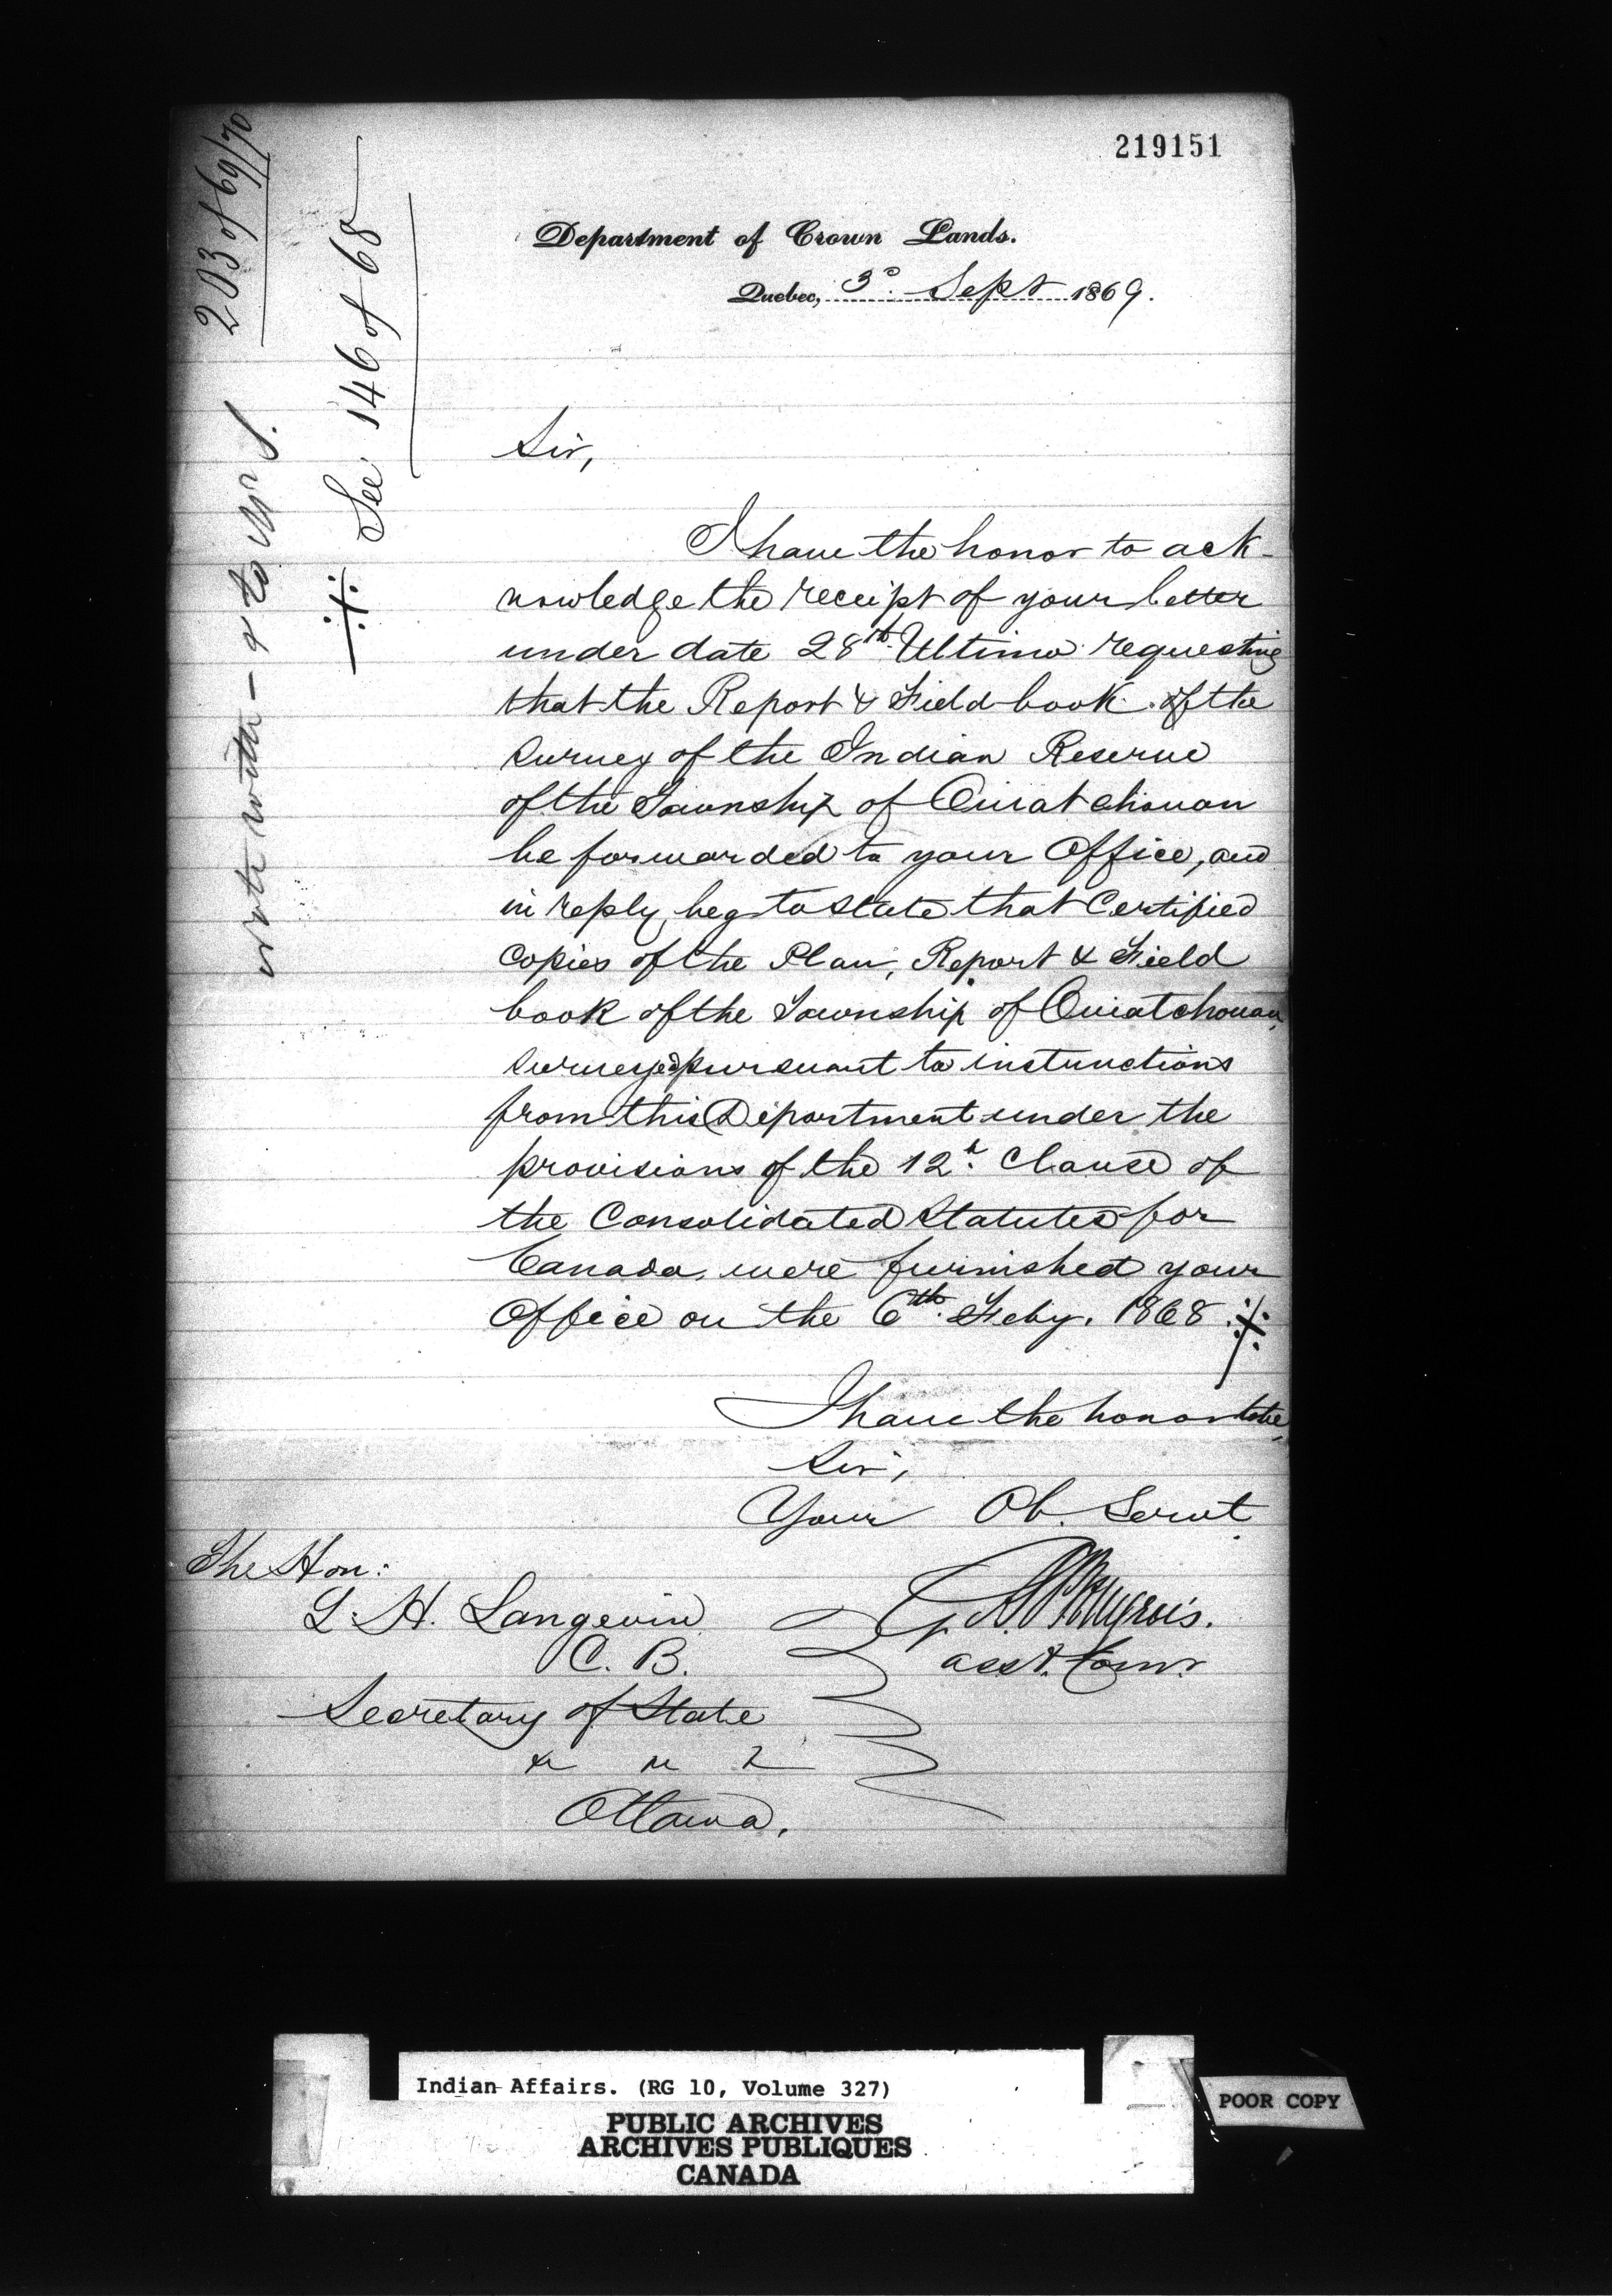 219151
203 of 69/70
See 146 of 68
Department of Crown Lands.
Quebec, 3d. Sept 1869.
Sir,
I have the honor to ack-
nowledge the receipt of your letter
under date 28th Ultimo requesting
that the Report & Field book of the
Survey of the Indian Reserve
of the Township of Ouiatchouan
be forwarded to your Office, and
in reply beg to state that Certified
Copies of the Plan, Report & Field
book of the Township of Ouiatchouan,
Surveyed pursuant to instructions
from this Department under the
provisions of the 12t. Clause of
the Consolidated Statutes for
Canada, were furnished your
Office on the 6th. Feby. 1868.
I have the honor to be,
Sir,
Your Ob. Servt
The Hon:
L. H. Langevin
C. B.
asst. Comr
Secretary of State
Ottawa.
Indian Affairs. (RG 10, Volume 327)
PUBLIC ARCHIVES
ARCHIVES PUBLIQUES
CANADA
POOR COPY